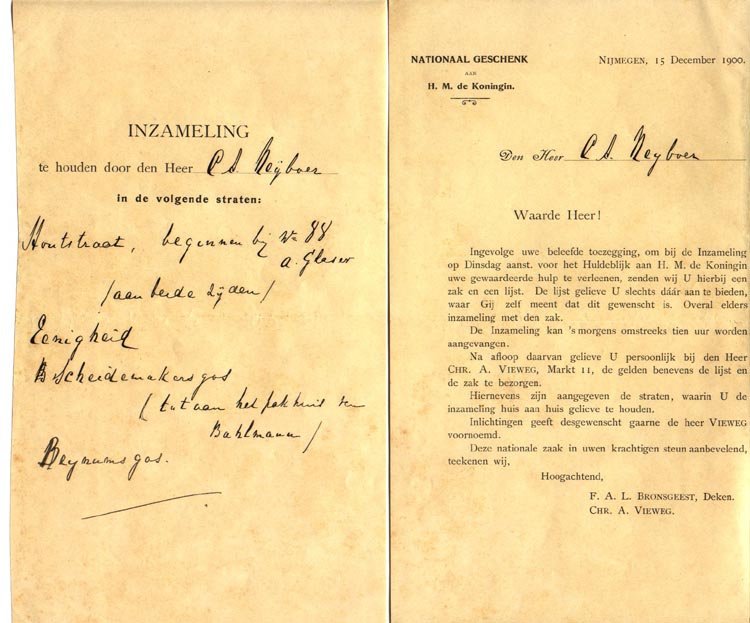 INZAMELING
te houden door den Heer C A Neijboer
in de volgende straten:
Houtstraat, beginnen bij No 88
a. Glaser
/aan beide zijden/
Eenigheid
Scheidemakersgas
( tot aan het pakhuis van
Bahlmann /
Reynumsgas.
NATIONAAL GESCHENK
AAN
H. M. de Koningin.
NIJMEGEN, 15 December 1900.
Den Heer C A. Neyboer
Waarde Heer!
Ingevolge uwe beleefde toezegging, om bij de Inzameling
op Dinsdag aanst. voor het Huldeblijk aan H. M. de Koningin
uwe gewaardeerde hulp te verleenen, zenden wij U hierbij een
zak en een lijst. De lijst gelieve U slechts dáár aan te bieden,
waar Gij zelf meent dat dit gewenscht is. Overal elders
inzameling met den zak.
De Inzameling kan 's morgens omstreeks tien uur worden
aangevangen.
Na afloop daarvan gelieve U persoonlijk bij den Heer
CHR. A. VIEWEG, Markt 11, de gelden benevens de lijst en
de zak te bezorgen.
Hiernevens zijn aangegeven de straten, waarin U de
inzameling huis aan huis gelieve te houden.
Inlichtingen geeft desgewenscht gaarne de heer VIEWEG
voornoemd.
Deze nationale zaak in uwen krachtigen steun aanbevelend,
teekenen wij,
Hoogachtend,
F. A. L. BRONSGEEST, Deken.
CHR. A. VIEWEG.